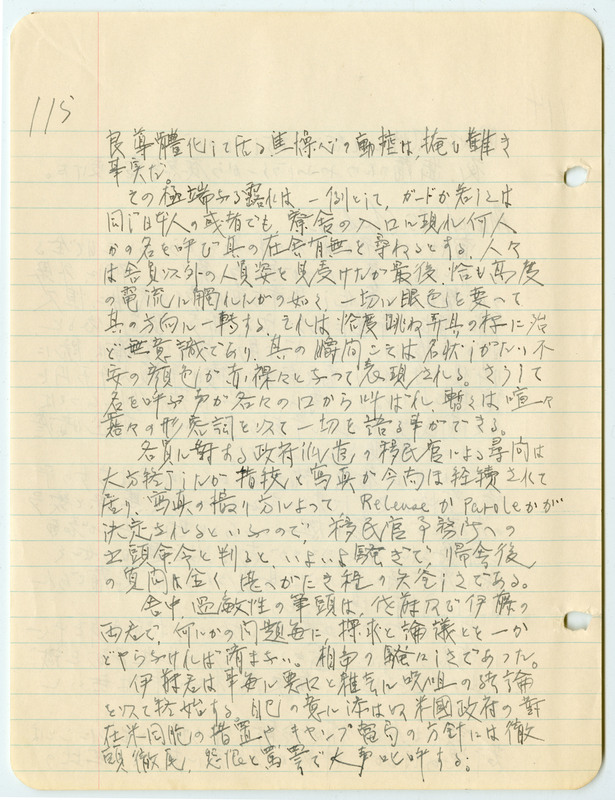 115
良導體化して居る焦燥心の動揺は、掩ひ難き
事実だ。
その極端なる露れは、一例として、ガードか若しくは
同じ日本人の或者でも、寮舎の入口に現れ何人
かの名を呼び其の在舎有無を尋ねるとする。人々
は舎員以外の人員姿を見受けたが最後、恰も高度
の電流に觸れたかの如く、一切は眼色を変へて
其の方向に一轉する。それは恰度跳ね弄具の様に殆
ど無意識であり、其の瞬間こそは名状しがたい不
安の顔色が赤裸々となって表現される。さうして
名を呼ぶ声が各々の口から叫ばれ、暫くは喧々
囂々の形容詞を以て一切を語る事ができる。
各員に対する政府派遣の移民官による尋問は
大方終了したが 指紋と写真が今尚ほ継続されて
居り、写真の撮り方によって Release か Parole かが
決定されるといふので、移民官事務所への
出頭命令と判ると、いよいよ騒ぎで 帰舎後
の質問は全く、答へがたき程の矢釜しさである。
舎中、過敏性の筆頭は、佐藤及び伊藤の
両君で、何にかの問題毎に、探求と論議とを一か
どやらなければ済まない。相当の騒がしさであった。
伊藤君は事毎に悪口と雑言に呪咀の結論
を以て終始する。自己の意に添はぬ米國政府の對
在米同胞の措置や キャンプ當局の方針には徹
頭徹尾、怨恨と罵詈で大声叱呼する。